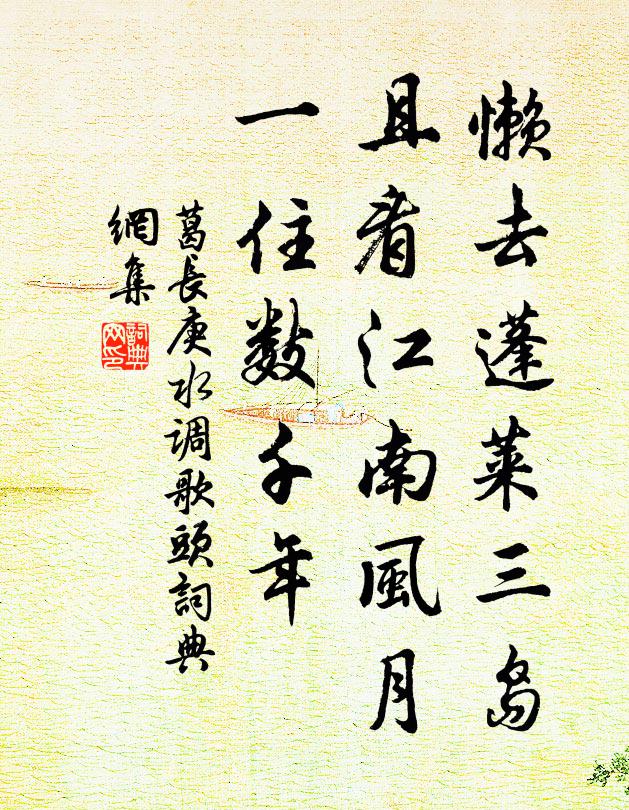 懒去蓬萊三岛
且看江南風月
一住數千年
葛長庚水调歌頭詞典
網集
詞典网印